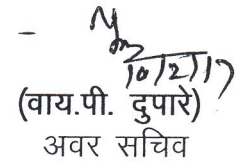 10/2/17
(वाय.पी. दुपारे)
अवर सचिव